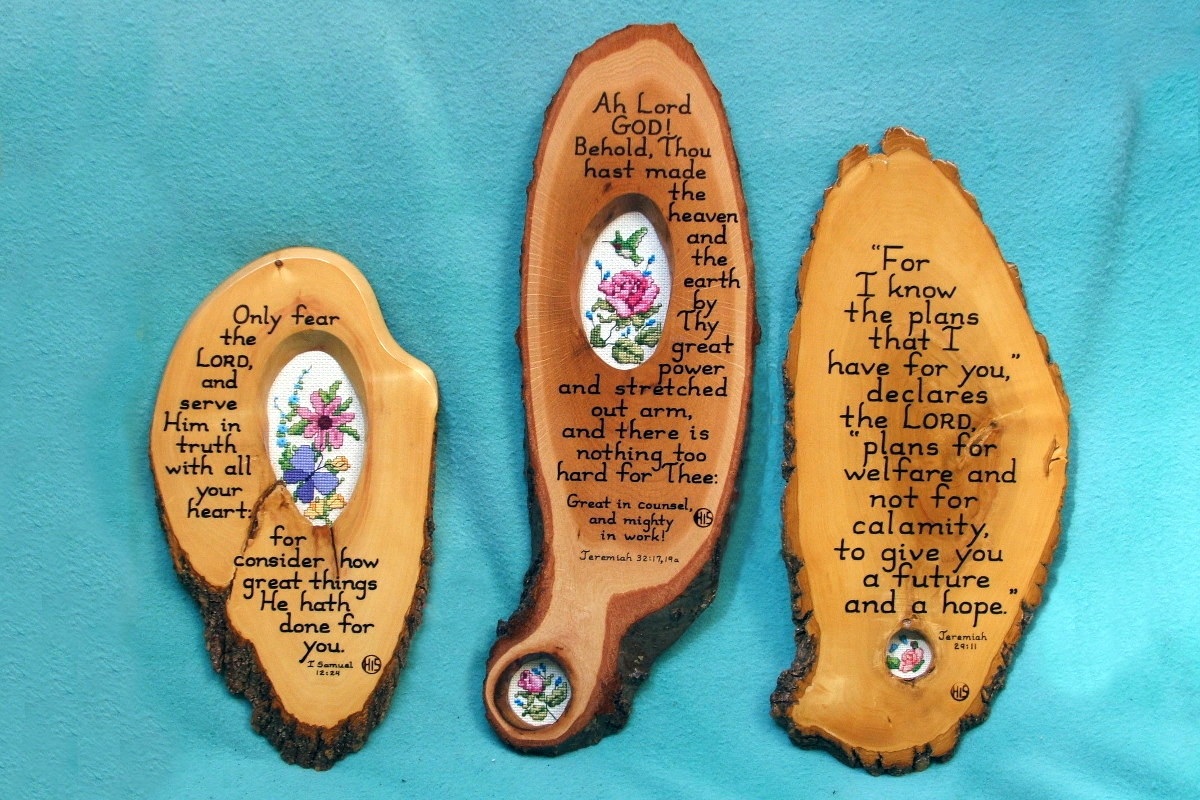 Only fear
the
LORD,
and
serve
Him in
truth
with all
your
heart:
for
consider how
great things
He hath
done for
you.
I Samuel
12:24
HIS
Ah Lord
GOD!
Behold, Thou
hast made
the
heaven
and
the
earth
by
Thy
great
power
and stretched
out arm,
and there is
nothing too
hard for Thee:
Great in counsel,
and mighty
in work!
HIS
Jeremiah 32:17,19a
“For
I know
the plans
that I
have for you,”
declares
the LORD,
“plans for
welfare and
not for
calamity,
to give you
a future
and a hope.”
Jeremiah
29:11
HIS